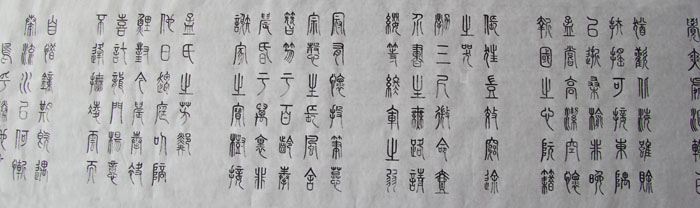 覺爽處涸轍已
猶歡北海雖賒
扶搖可接東隅
已逝桑榆非晚
孟嘗高潔空懷
報國之心阮籍
猖狂豈效窮途
之哭
勃三尺微命壹
介書生無路請
纓等終軍之弱
冠有懷投筆慕
宗愨之長風舍
簪笏于百齡奉
晨昏于萬里非
謝家之寶樹接
孟氏之芳鄰
他日趨庭叨陪
鯉對今晨捧袂
喜託龍門楊意
不逢撫凌雲而
自惜鍾期既遇
奏流水以何慚
嗚乎勝地